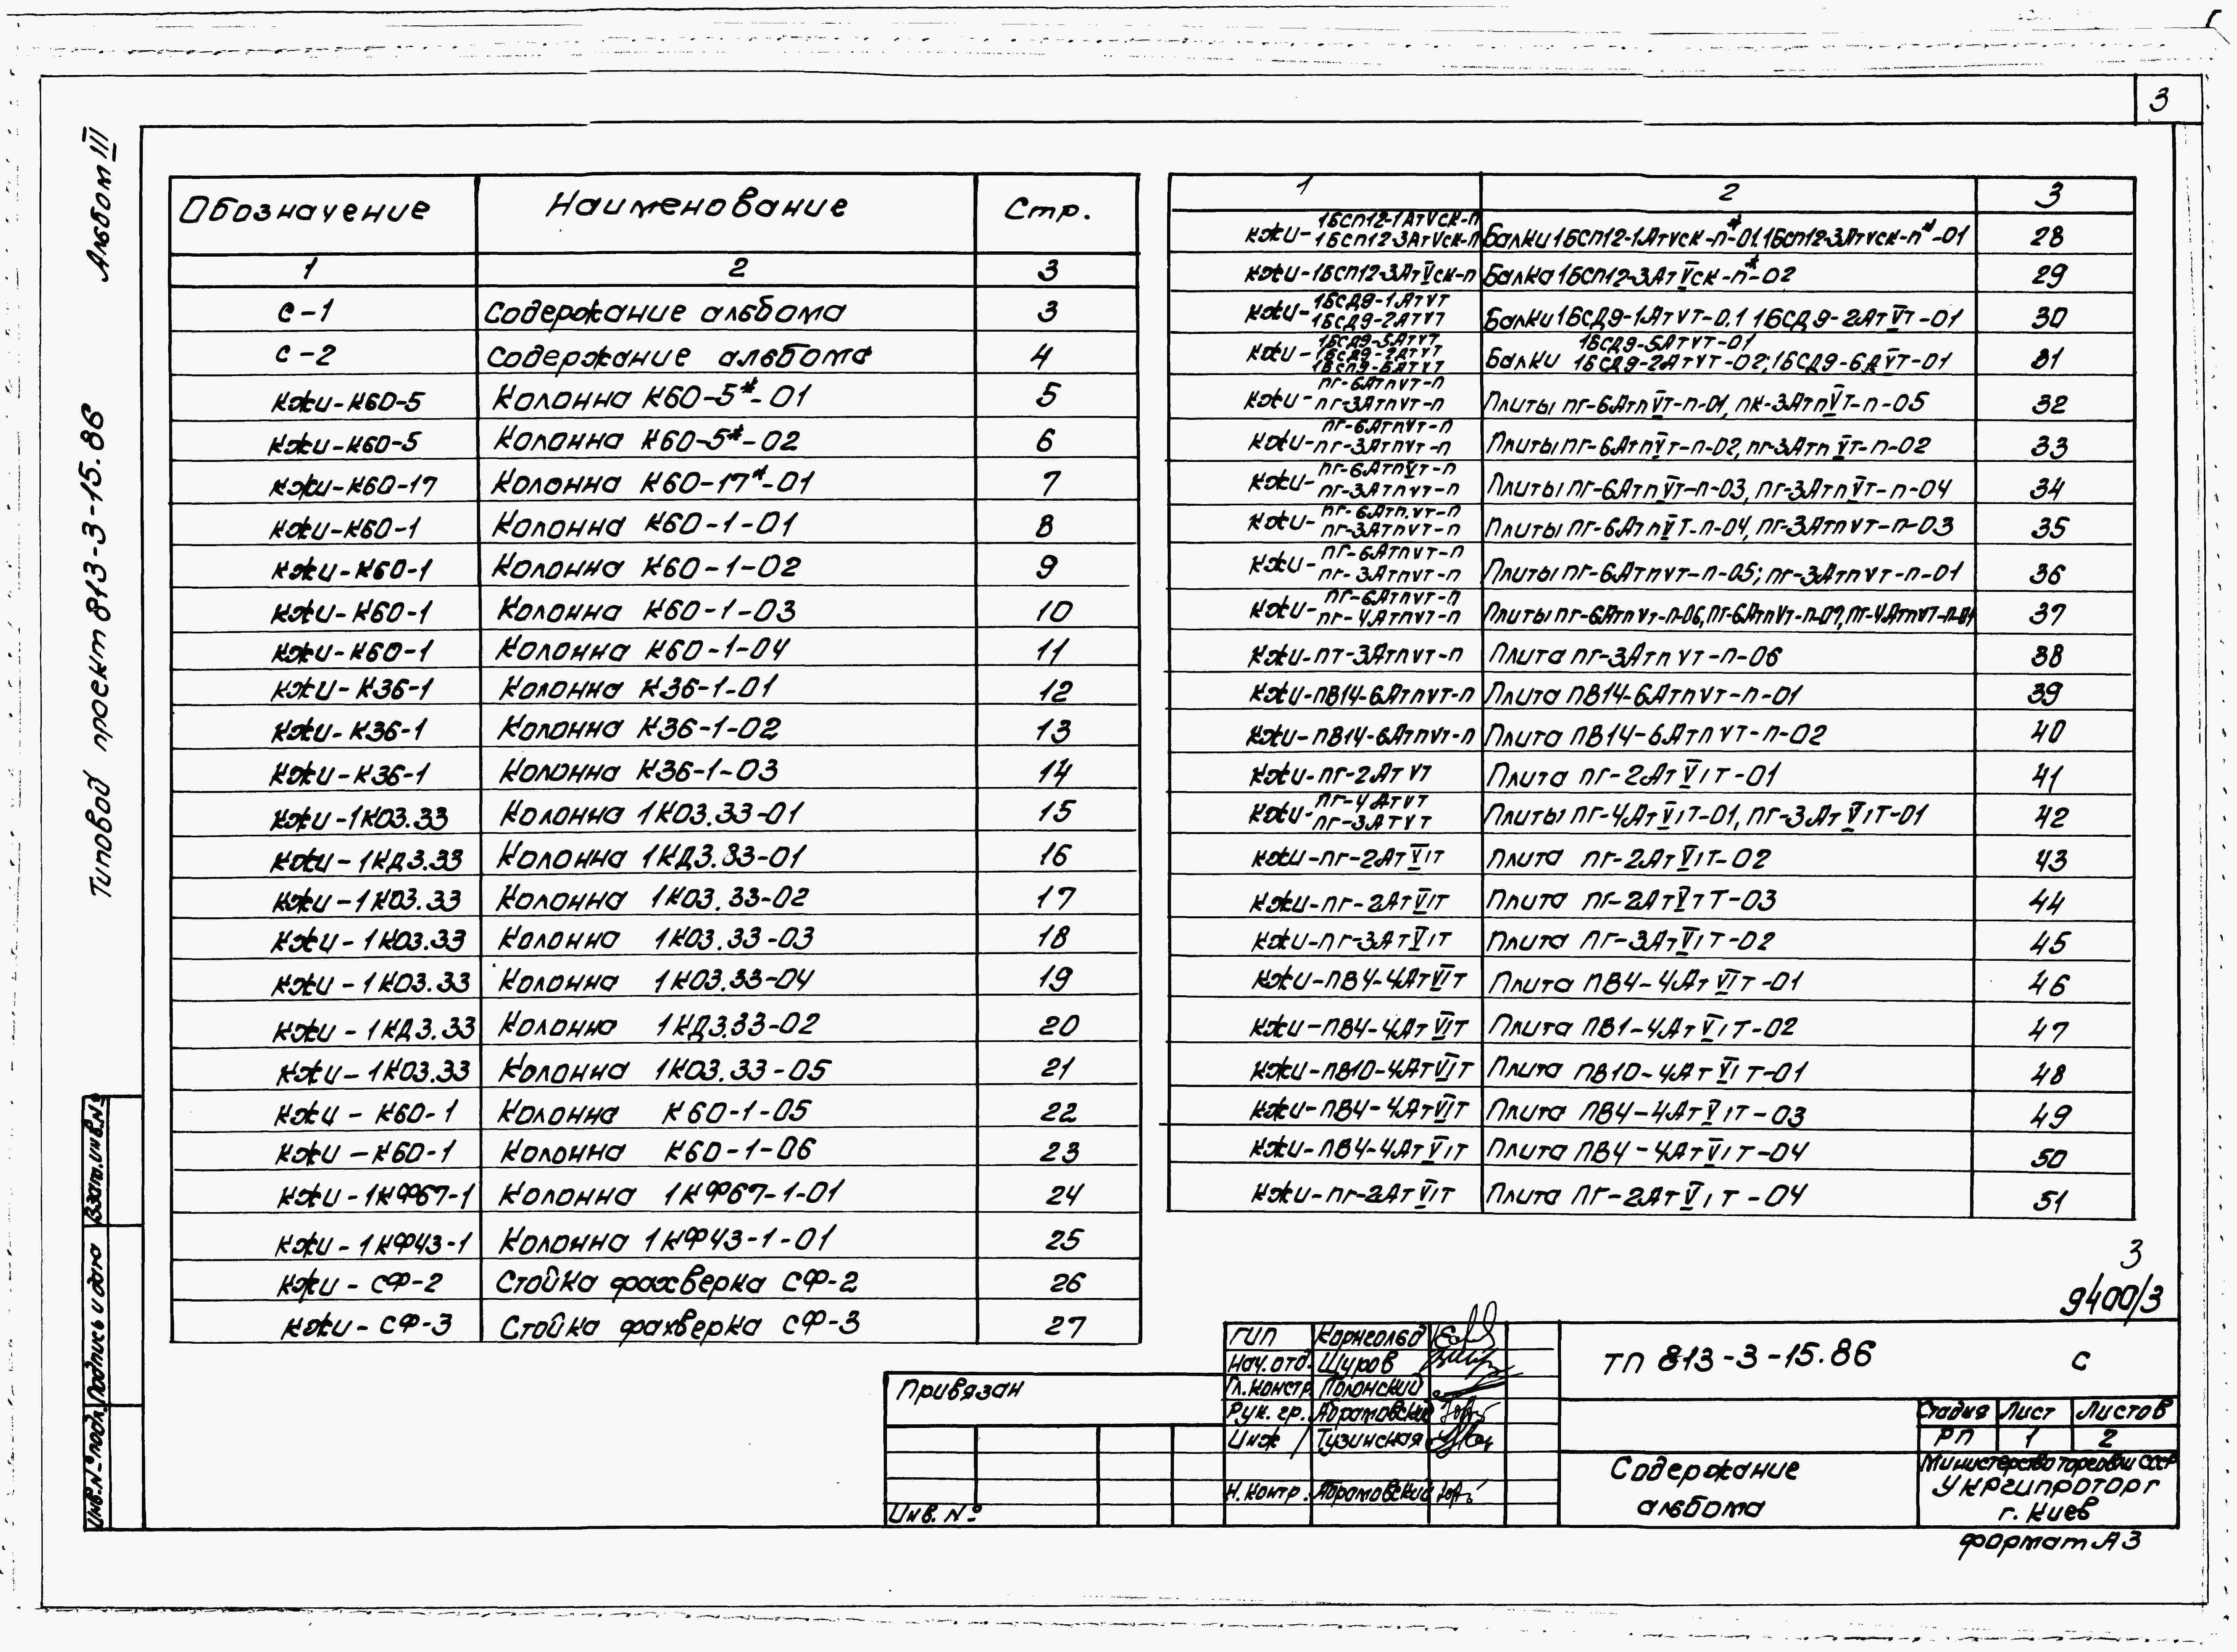 3
Альбом III
Типовой проект 813-3-15.86
Обозначение Наименование Стр.
1 2 3
С-1 Содержание альбома 3
С-2 Содержание альбома 4
КЖИ-К60-5 Колонна К60-5*-01 5
КЖИ-К60-5 Колонна К60-5*-02 6
КЖИ-К60-17 Колонна К60-17*-01 7
КЖИ-К60-1 Колонна К60-1-01 8
КЖИ-К60-1 Колонна К60-1-02 9
КЖИ-К60-1 Колонна К60-1-03 10
КЖИ-К60-1 Колонна К60-1-04 11
КЖИ-К36-1 Колонна К36-1-01 12
КЖИ-К36-1 Колонна К36-1-02 13
КЖИ-К36-1 Колонна К36-1-03 14
КЖИ-1К03.33 Колонна 1К03.33-01 15
КЖИ-1КД3.33 Колонна 1КД3.33-01 16
КЖИ-1К03.33 Колонна 1К03.33-02 17
КЖИ-1К03.33 Колонна 1К03.33-03 18
КЖИ-1К03.33 Колонна 1К03.33-04 19
КЖИ-1КД3.33 Колонна 1КД3.33-02 20
КЖИ-1К03.33 Колонна 1К03.33-05 21
КЖИ-К60-1 Колонна К60-1-05 22
КЖИ-К60-1 Колонна К60-1-06 23
КЖИ-1КФ67-1 Колонна 1КФ67-1-01 24
КЖИ-1КФ43-1 Колонна 1КФ43-1-01 25
КЖИ-СФ-2 Стойка фахверка СФ-2 26
КЖИ-СФ-3 Стойка фахверка СФ-3 27
1 2 3
КЖИ-1БСП12-1АтVСК-П 1БСП12-3АтVСК-П Балки 1БСП12-1АтVСК-П*-01. 1БСП12-3АтVСК-П*-01 28
КЖИ-1БСП12-3АтVСК-П Балка 1БСП12-3АтVСК-П*-02 29
КЖИ-1БСД9-1АТVТ 1БСД9-2АТVТ Балки 1БСД9-1АтVТ-0.1 1БСД9-2АтVТ-01 30
КЖИ-1БСД9-5АТVТ 1БСД9-2АТVТ 1БСП9-6АТVТ Балки 1БСД9-5АТVТ-01 1БСД9-2АТVТ-02; 1БСД9-6АVТ-01 31
КЖИ-ПГ-6АтпVТ-П ПГ-3АтпVТ-П Плиты ПГ-6АтпVТ-П-01, ПК-3АтпVТ-П-05 32
КЖИ-ПГ-6АтпVТ-П ПГ-3АтпVТ-П Плиты ПГ-6АтпVТ-П-02, ПГ-3АтпVТ-П-02 33
КЖИ-ПГ-6АтпVТ-П ПГ-3АтпVТ-П Плиты ПГ-6АтпVТ-П-03, ПГ-3АтпVТ-П-04 34
КЖИ-ПГ-6АтпVТ-П ПГ-3АтпVТ-П Плиты ПГ-6АтпVТ-П-04, ПГ-3АтпVТ-П-03 35
КЖИ-ПГ-6АтпVТ-П ПГ-3АтпVТ-П Плиты ПГ-6АтпVТ-П-05; ПГ-3АтпVТ-П-01 36
КЖИ-ПГ-6АтпVТ-П ПГ-4АтпVТ-П Плиты ПГ-6АтпVТ-П-06, ПГ-6АтпVТ-П-07, ПГ-4АтпVТ-П-01 37
КЖИ-ПТ-3АтпVТ-П Плита ПГ-3АтпVТ-П-06 38
КЖИ-ПВ14-6АтпVТ-П Плита ПВ14-6АтпVТ-П-01 39
КЖИ-ПВ14-6АтпVТ-П Плита ПВ14-6АтпVТ-П-02 40
КЖИ-ПГ-2АтVТ Плита ПГ-2АтVIТ-01 41
КЖИ-ПГ-4АтVТ ПГ-3АТVТ Плиты ПГ-4АтVIТ-01, ПГ-3АтVIТ-01 42
КЖИ-ПГ-2АтVIТ Плита ПГ-2АтVIТ-02 43
КЖИ-ПГ-2АтVIТ Плита ПГ-2АтVIТ-03 44
КЖИ-ПГ-3АтVIТ Плита ПГ-3АтVIТ-02 45
КЖИ-ПВ4-4АтVIТ Плита ПВ4-4АтVIТ-01 46
КЖИ-ПВ4-4АтVIТ Плита ПВ1-4АтVIТ-02 47
КЖИ-ПВ10-4АтVIТ Плита ПВ10-4АтVIТ-01 48
КЖИ-ПВ4-4АтVIТ Плита ПВ4-4АтVIТ-03 49
КЖИ-ПВ4-4АтVIТ Плита ПВ4-4АтVIТ-04 50
КЖИ-ПГ-2АтVIТ Плита ПГ-2АтVIТ-04 51
3
9400/3
Взам.инв.№
Подпись и дата
Инв.№ подл.
Привязан
Инв. №
ГИП Корнгольд
Нач.отд. Щуров
Гл.констр. Полонский
Рук. гр. Абрамовский
Инж Тузинская
Н.контр. Абрамовский
ТП 813-3-15.86 С
Стадия Лист Листов
РП 1 2
Содержание альбома
Министерство торговли СССР
УКРГИПРОТОРГ
г. Киев
формат А3